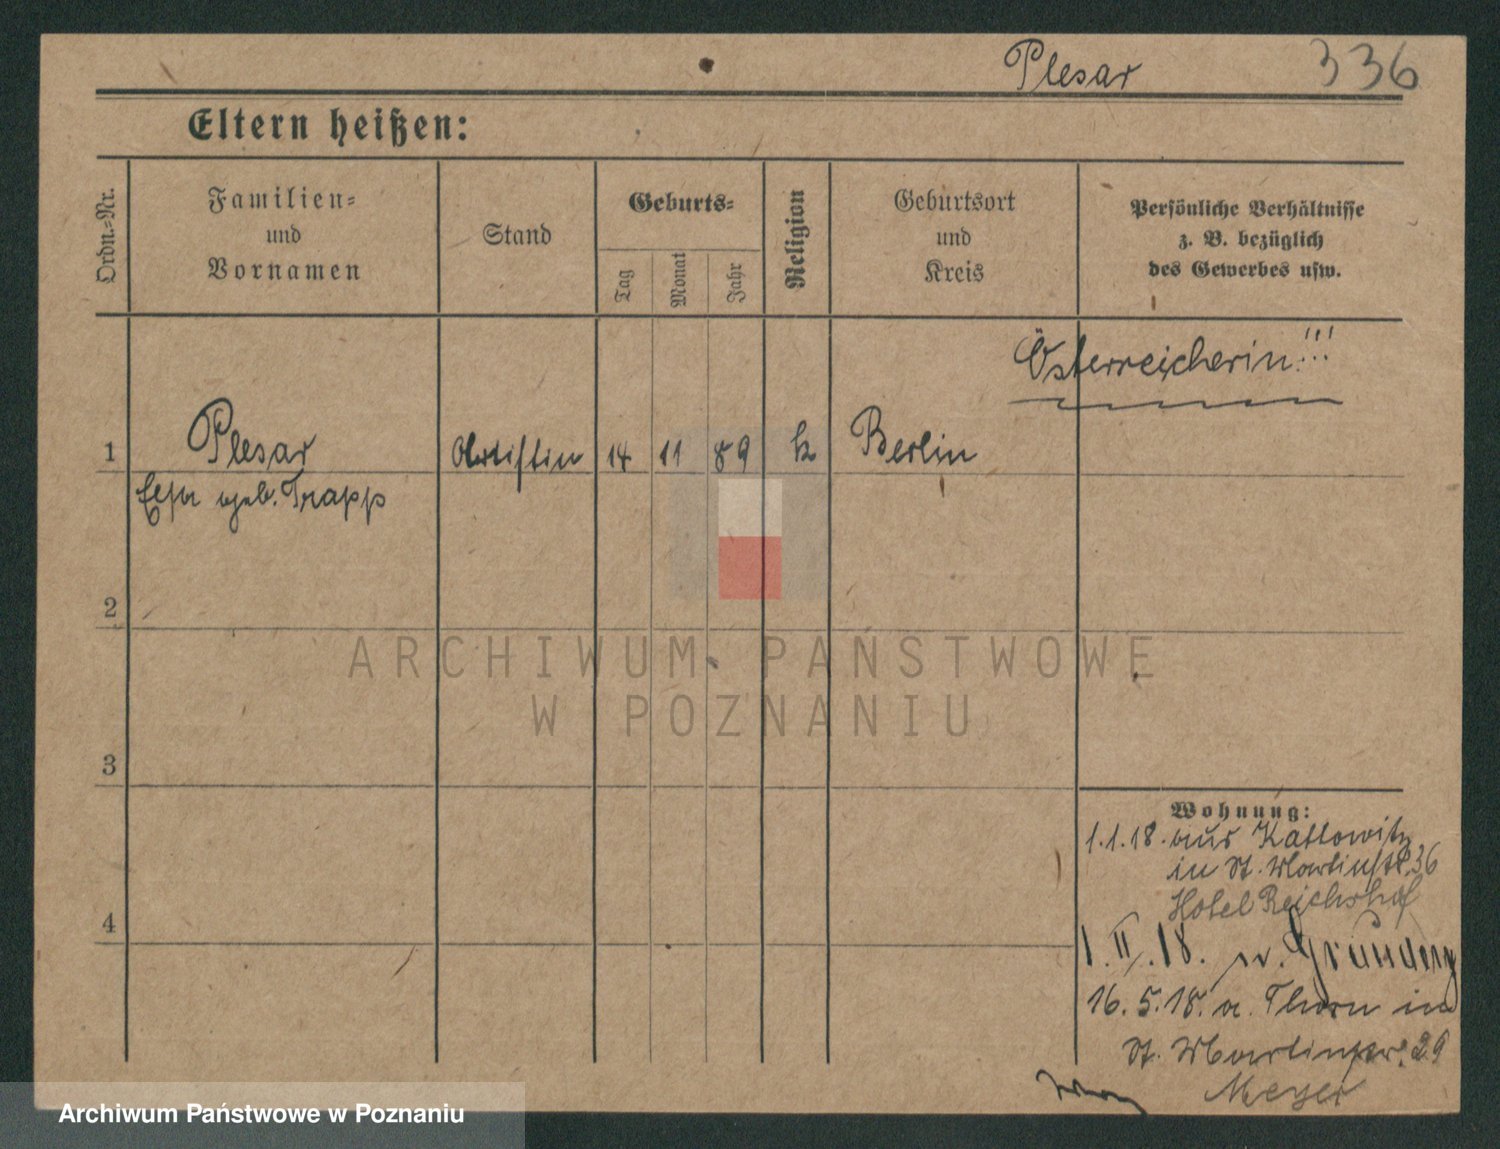 Plesar 336
Eltern heißen:
Ordn.-Nr.
Familien-
und
Vornamen
Stand
Geburts-
Tag
Monat
Jahr
Religion
Geburtsort
und
Kreis
Persönliche Verhältnisse
z. B. bezüglich
des Gewerbes usw.
Österreicherin!!!
1 Plesar Artistin 14 11 89 k Berlin
geb. Trapp
2
3
4
ARCHIWUM PAŃSTWOWE
W POZNANIU
Wohnung:
1.1.18. aus Kattowitz
in St. Martinstr. 36
Hotel Reichshof
1.II.18. n. Graudenz
16.5.18. a. Thorn in
St. Martinstr. 29
Meyer
Archiwum Państwowe w Poznaniu